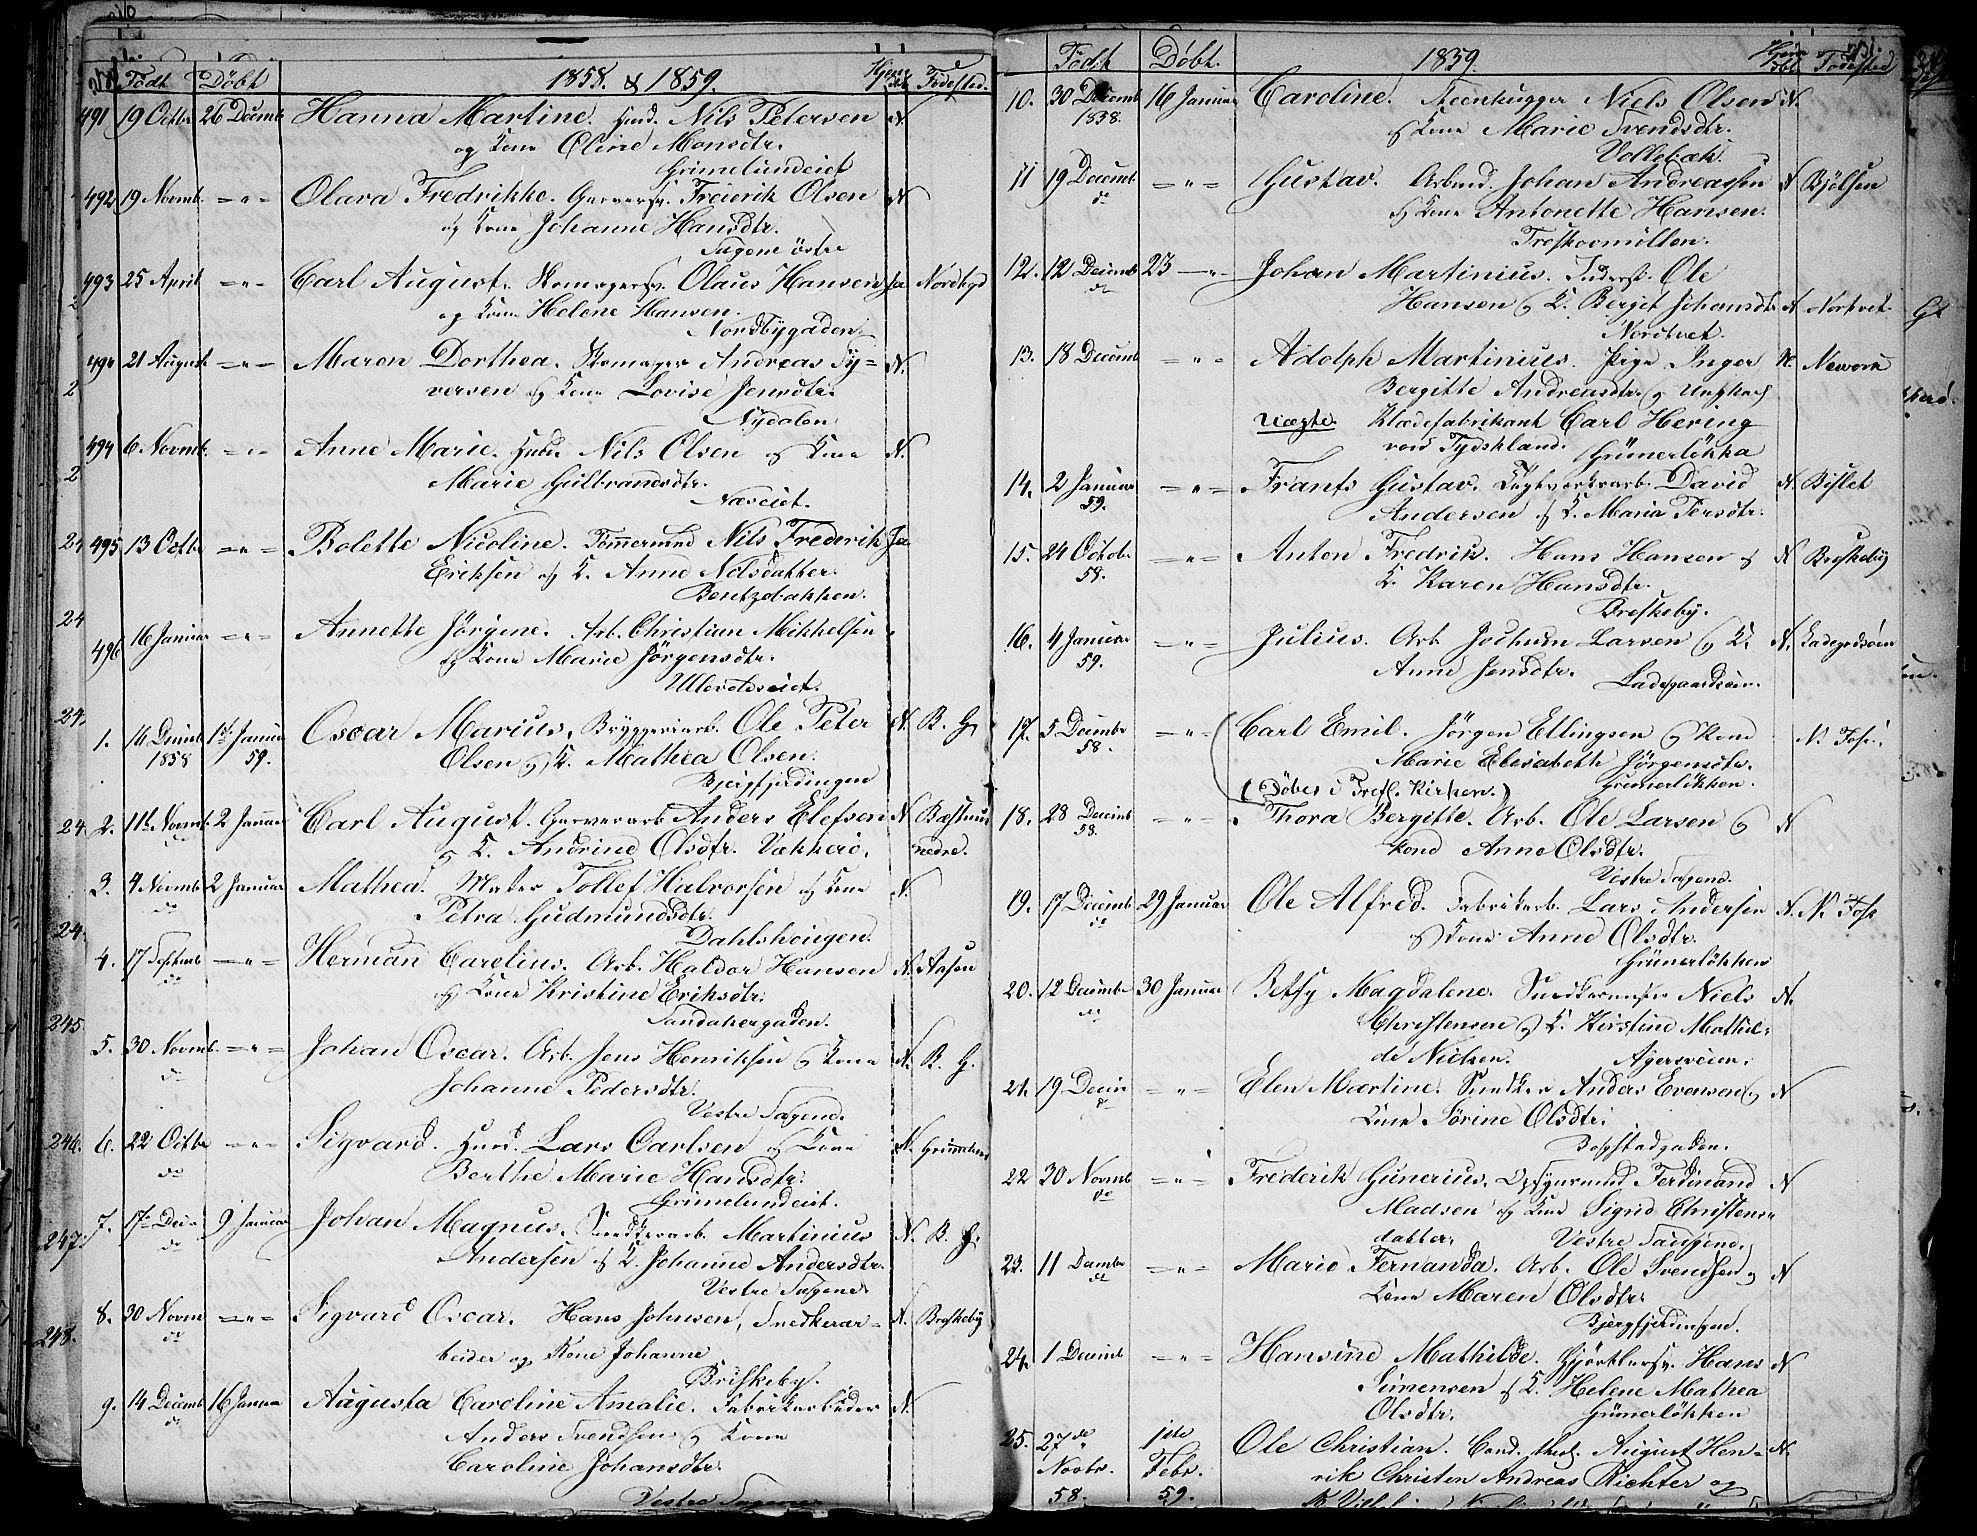 Født Døbt 1858. & 1859. Fødested.
491 19 Octbr 26 Decmb Hanna Martine. Huusd. Nils Petersen N.
og Kone Oline Monsdtr.
Grimelundeiet
492 19 Novmb. — " — Olava Fredrikke. Garversv. Frederik Olsen N
og Kone Johanne Hansdtr.
Sagene östre
493 25 April — " — Carl August. Skomagersv. Olaus Hansen Ja Nordbyd
og Kone Helene Hansen.
Nordbygaden
494 21 August — " — Maren Dorthea. Skomager Andreas Sy=
versen og Kone Lovise Jensdtr. N.
Nydalen
494 6 Novmb. — " — Anne Marie. Nils Olsen og Kone N.
Marie Gulbrandsdtr.
Næseiet.
495 13 Octbr — " — Bolette Nicoline. Tømmermd Nils Frederik Ja
Eriksen og K. Anne Nelsdatter.
Bentzebakken.
496 16 Januar — " — Annette Jörgine. Arb. Christian Mikkelsen
og Kone Marie Jörgensdtr.
Ullevoldseiet.
1. 16 Decmb 1858 1st Januar 59. Oscar Marius. Bryggeriarb. Ole Peter N. B. G
Olsen og K. Mathea Olsen.
Bjergfjerdingen
2. 11te Novmb. 2 Januar Carl August. Garverarb Anders Elefsen N Bæstuus
og K. Andrine Olsdtr. Vækkerö. nedre.
3. 4 Novmb 2 Januar Mathea. Maler Tollef Halvorsen og Kone N.
do Petra Gudmundsdtr.
Dahlshougen.
4. 17 Septemb — " — Herman Carelius. Arb. Haldor Hansen N. Aasen
do og Kone Kristine Eriksdtr.
Sandakergaden.
5. 30 Novmb. — " — Johan Oscar. Arb. Jens Henriksen og Kone N. B. G.
do Johanne Pedersdtr.
Vestre Sagene.
6. 22 Octbr — " — Sigvard. Huusd. Lars Carlsen og Kone N.
do Berthe Marie Hansdtr.
Grimelundeiet.
7. 17 Decb 9 Januar Johan Magnus. Snedkerarb. Martinius N. B. G.
do Andersen og K. Johanne Andersdtr.
Vestre Sagene
8. 30 Novm — " — Sigvard Oscar. Hans Johnsen, Snedkerar= N. Breskeby
do beider og Kone Johanne
Briskeby.
9. 14 Decemb 16 Januar Augusta Caroline Amalie. Fabrikarbeider N.
do Anders Svendsen og Kone
Caroline Johansdtr.
Vestre Sagene
Født Døbt. 1859. Fødested
10. 30 Decemb 1858. 16 Januar Caroline. Steenhugger Niels Olsen N.
og Kone Marie Svendsdtr.
Vollebæk.
11 19 Decemb — " — Gustav. Arbmd. Johan Andreassen N Bjölsen
do og Kone Antonette Hansen.
12. 12 Decemb 23 — " — Johan Martinius. Inderst. Ole
do Hansen og K. Berget Johansdtr N Nortvet.
Nordtvet.
13. 18 Decemb — " — Adolph Martinius. Pige Inger N. Nework
Bergitte Andreasdtr. og Ungkarl
uægte. Klædefabrikant Carl Hering
ved Tydskland. Grünerløkka
14. 2 Januar 59. — " — Frants Gustav. Teglverksarb. David N. Bislet
Andersen og K. Maria Persdtr.
15. 24 Octob. 58. — " — Anton Fredrik. Hans Hansen og N Breskeby
K. Karen Hansdtr.
Breskeby.
16. 4 Januar 59. — " — Julius. Arb Jochum Larsen og K. N. Ladegrdsøen
Anne Jensdtr.
Ladegaardsøen.
17. 5 Decembr 58. — " — Carl Emil. Jörgen Ellingsen og Kone N. Fosz.
Marie Elisabeth Jörgensdtr.
(Döbes i Trefl. Kirken.) Grünerløkken.
18. 28 Decemb 58. — " — Thora Bergitte. Arb. Ole Larsen og N
Kone Anne Olsdtr.
Vestre Sagene.
19. 17 Decemb 29 Januar Ole Alfred. Fabrikarb. Lars Andersen N. N. Fosz
do og Kone Anne Olsdtr.
Grünerløkken
20. 12 Decembr 30 Januar Betsy Magdalene. Snedkermester Niels N.
do Christensen og K. Kirstine Mathil-
de Nielsen. Agersveien.
21. 19 Decm — " — Elen Martine. Snedker Anders Evensen og N
do Kone Sörine Olsdtr.
Bogstadgaden.
22 30 Novmb — " — Frederik Gunerius. Opsynsmand Ferdinand N
do Madsen og Kone Sigrid Christens-
datter. Vestre Sagene.
23. 11 Decmbr — " — Marie Fernanda. Arb. Ole Svendsen og N
do Kone Maren Olsdtr.
Bjergfjerdingen.
24. 1 Decemb — " — Hansine Mathilde. Hjörtkersv. Hans N
Simensen og K. Helene Mathea
Olsdtr. Grünerløkken
25. 27de 1ste Ole Christian. Cand. theol. August Hen- N.
Novbr. Febr. rik Christen Andreas Richter og
58. 59.